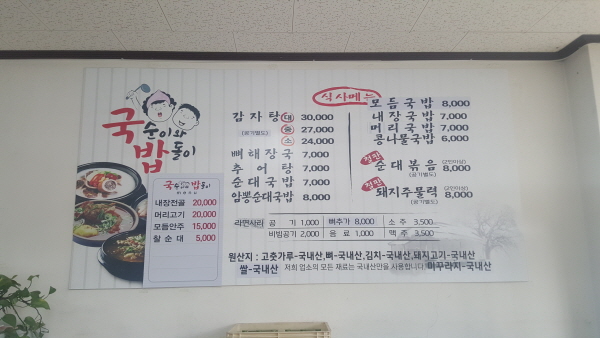 국순이와
밥돌이
국순이와밥돌이
내장전골 20,000
머리고기 20,000
모듬안주 15,000
찰순대 5,000
식사메뉴
감자탕 대 30,000
(공기별도) 중 27,000
소 24,000
뼈해장국 7,000
추어탕 7,000
순대국밥 7,000
암뽕순대국밥 8,000
모듬국밥 8,000
내장국밥 7,000
머리국밥 7,000
콩나물국밥 6,000
순대볶음 (2인이상) 8,000
(공기별도)
돼지주물럭 (2인이상) 8,000
(공기별도)
라면사리 공기 1,000 뼈추가 8,000 소주 3,500
비빔공기 2,000 음료 1,000 맥주 3,500
원산지 : 고춧가루-국내산,뼈-국내산,김치-국내산,돼지고기-국내산
쌀-국내산 저희 업소의 모든 재료는 국내산만을 사용합니다. 미꾸라지-국내산